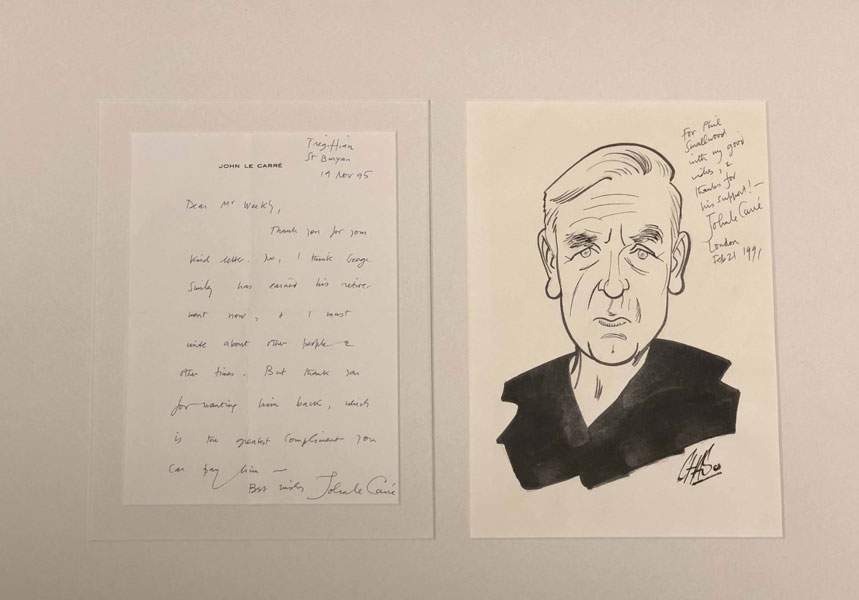 JOHN LE CARRÉ
Tregiffian
St Buryan
19 Nov 95
Dear Mr Weekly,
Thank you for your
kind letter. No, I think George
Smiley has earned his retire-
ment now, & I must
write about other people &
other times. But thank you
for wanting him back, which
is the greatest compliment you
can pay him —
Best wishes John le Carré
For Phil
Smallwood
with my good
wishes, &
thanks for
his support! —
John le Carré
London
Feb 21 1991
CHAS